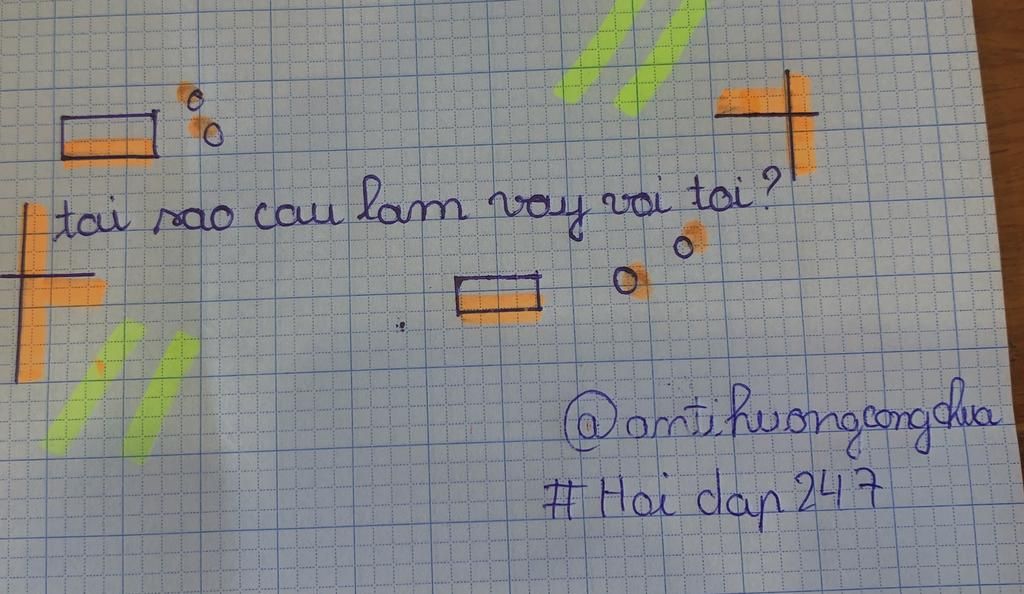 tai sao cau lam vay voi toi?
@omtihuongcongchua
# Hoi dap 247